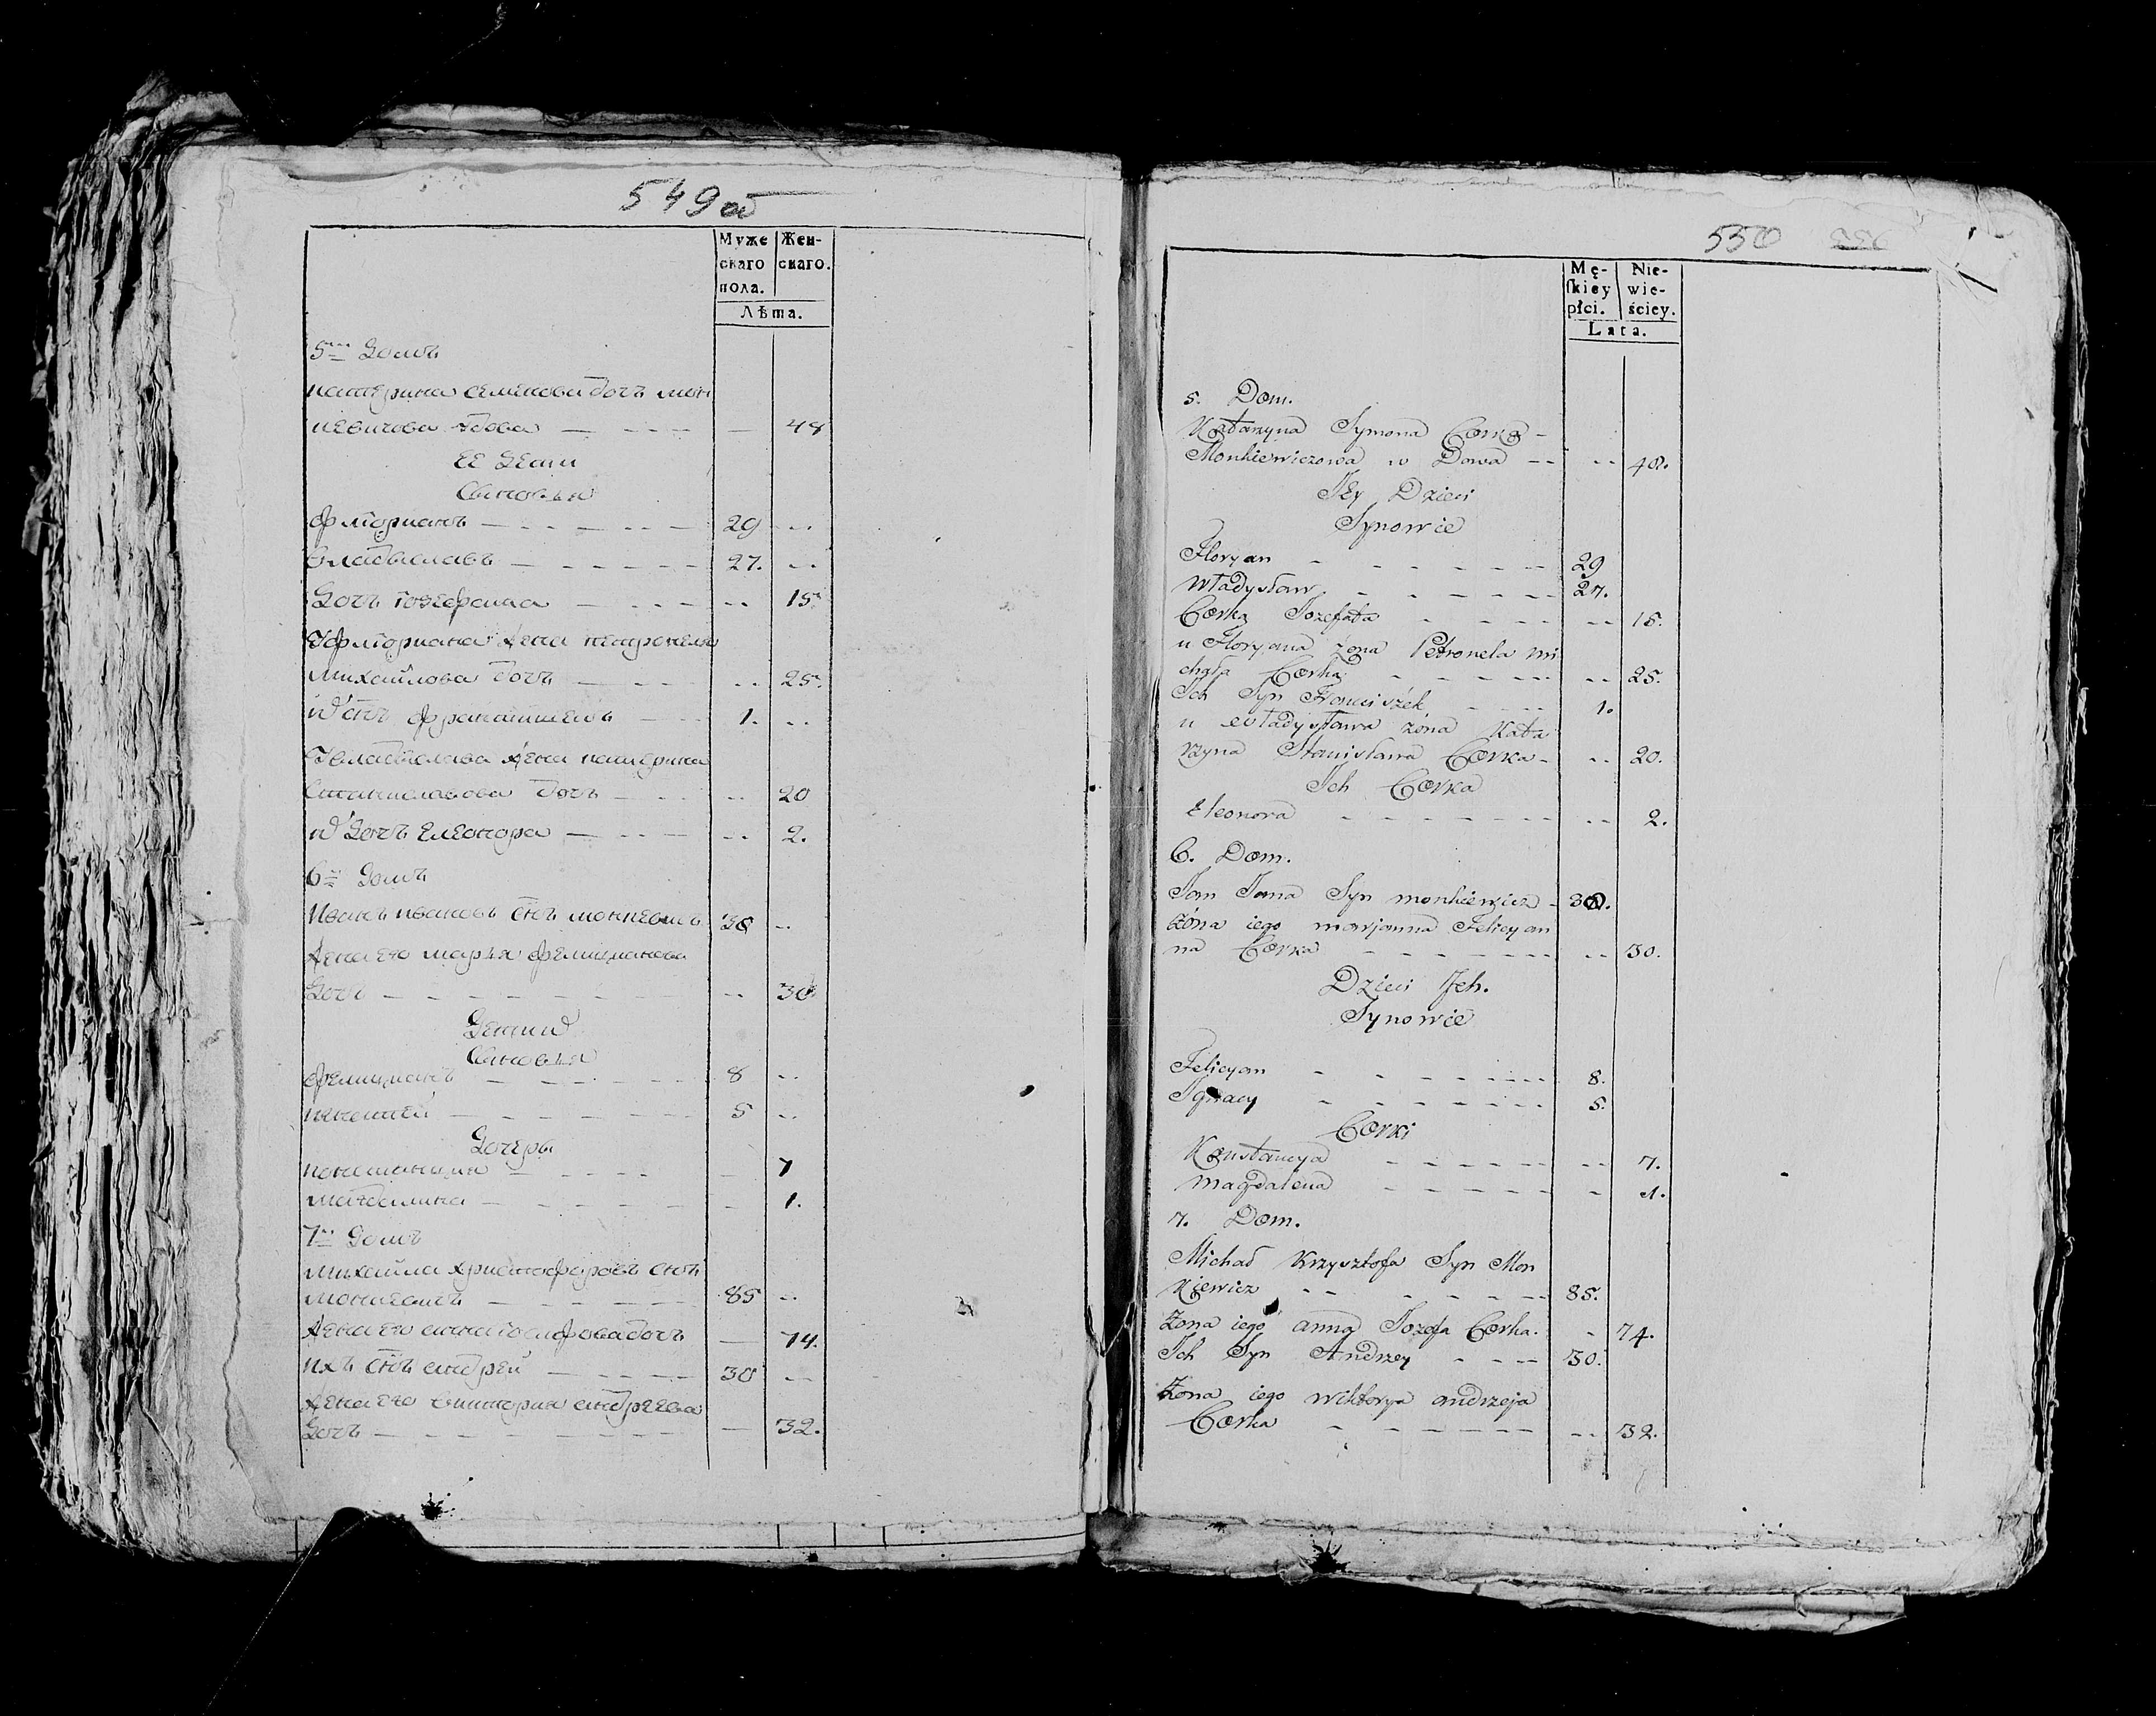 549 об
Муже Жен-
скаго скаго.
пола.
Лѣта.
5 Домъ
катерина семенова дочъ мон
кевичова вдова 48
ее дети
Сыновья
флориянъ 29
владыславъ 27.
Дочъ 15.
Уфлорияна жена петронеля
михайлова дочъ 25.
1.
Увладыслава жена катерина
Станиславова дочъ 20
Дочъ Елеонора 2.
6 Домъ
Иванъ ивановъ сынъ монкевичъ 38
жена его марья фелицианова
Дочъ 30
Дети
Сыновья
фелициянъ 8
5
Дочеры
констанция 7
магдалина 1.
7 Домъ
михайла христофоровъ сынъ
монкевичъ 85
жена его анна иосифова дочъ 74.
ихъ сынъ андрей 30
жена его виктория андреева
Дочъ 32.
550
Mę- Nie-
skiey wie-
płci. ściey.
Lata.
5. Dom.
Katarzyna Symona Corka
Monkiewiczowa w Dowa 48.
Jey Dzieci
Synowie
Floryan 29
Władysław 27.
Corka Jozefata 15.
u Floryana żona Petronela Mi
chała Corka 25.
Ich Syn Franciszek 1.
u władysława żona Kata
rzyna Stanisława Corka 20.
Ich Corka
Eleonora 2.
6. Dom.
Jan Jana Syn monkiewicz 38.
żona iego marjanna Felicyan
na Corka 30.
Dzieci Ich.
Synowie
Felicyan 8.
Ignacy 5.
Corki
Konstancya 7.
magdalena 1.
7. Dom.
Michał Krzysztofa Syn Mon
kiewicz 85.
Żona iego anna Jozefa Corka. 74.
Ich Syn Andrzey 30.
Żona iego wiktorya andrzeja
Corka 32.